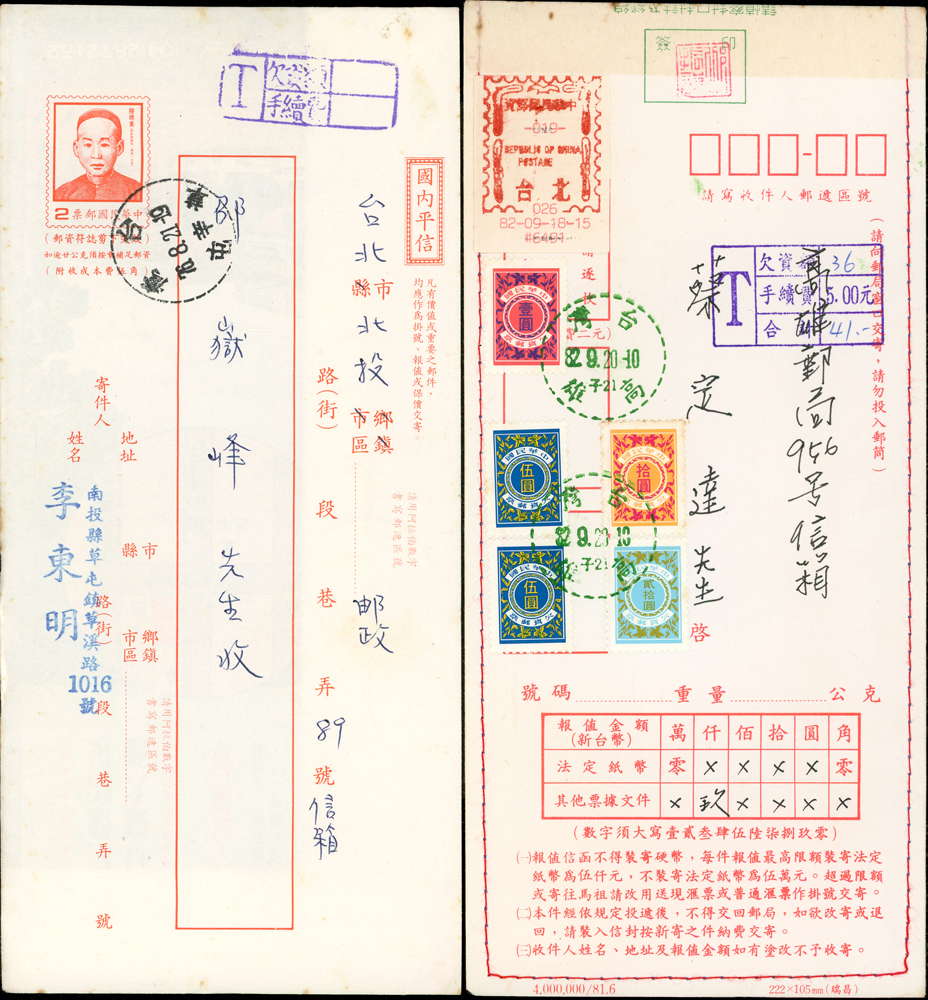 T
欠資
手續
陸皓東
2
票郵國民華中
(郵資符誌剪下
如逾廿公克須按章補足郵資
(附收成本費伍角)
國內平信
凡有價值或重要之郵件,
均應作爲掛號、報值或保價交寄。
台北縣市北投
鄉鎮市區
路(街)
段
巷
郵政
弄
89
號
信箱
請用阿拉伯數字
書寫郵遞區號
邵嶽峰先生收
台
78.9.21-19
寄件人
地址
姓名
南投縣草屯鎮草溪路
1016
號
李東明
縣市
鄉鎮市區
路(街)
段
巷
弄
號
請用阿拉伯數字
書寫郵遞區號
簽
印
-019-
REPUBLIC OF CHINA
POSTAGE
台北
026
82-09-18-15
請寫收件人郵遞區號
(請向郵局窗口交寄,請勿投入郵筒)
T
欠資 36
手續費 5.00元
合 41.-
高雄郵局956号信箱
定達先生
啓
壹圓
伍圓
拾圓
伍圓
貳拾圓
台灣
82.9.20-10
子21
高雄
82.9.20-10
子21
高
號碼 重量 公克
報值金額(新台幣) 萬 仟 佰 拾 圓 角
法定紙幣 零 × × × × 零
其他票據文件 × 玖 × × × ×
(數字須大寫壹貳叁肆伍陸柒捌玖零)
㈠報值信函不得裝寄硬幣,每件報值最高限額裝寄法定
紙幣爲伍仟元,不裝寄法定紙幣爲伍萬元。超過限額
或寄往馬祖請改用送現滙票或普通滙票作掛號交寄。
㈡本件經依規定投遞後,不得交回郵局,如欲改寄或退
回,請裝入信封按新寄之件納費交寄。
㈢收件人姓名、地址及報值金額如有塗改不予收寄。
4,000,000/81.6
222×105mm(瑞昌)